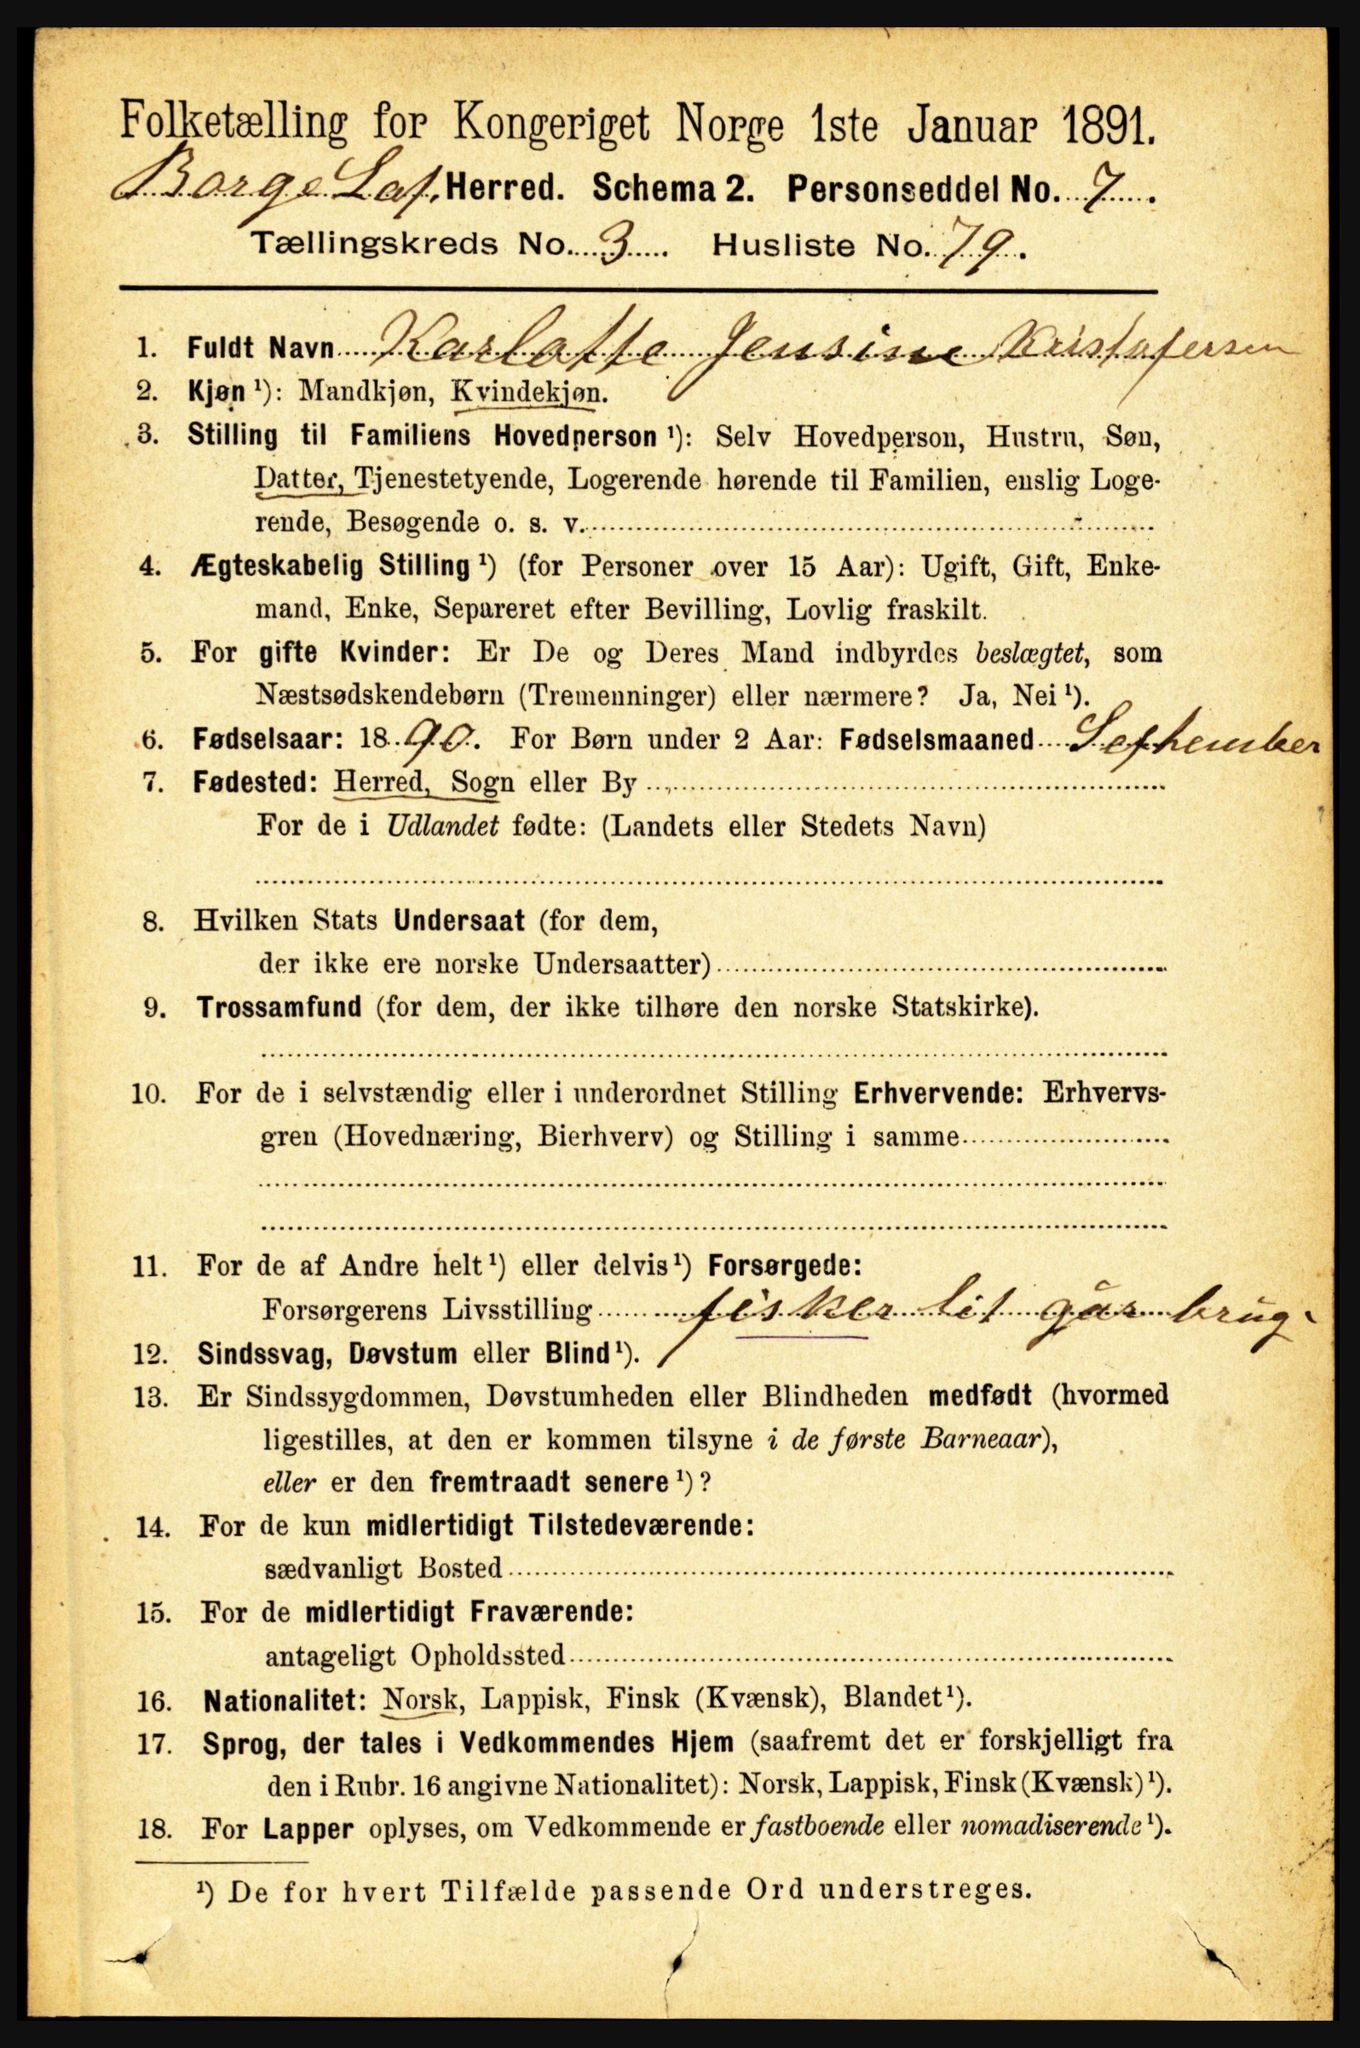 Folketælling for Kongeriget Norge 1ste Januar 1891.
Borge Lof. Herred. Schema 2. Personseddel No. 7.
Tællingskreds No. 3. Husliste No. 79.
1. Fuldt Navn Karlotte Jensine Kristofersen
2. Kjøn ¹): Mandkjøn, Kvindekjøn.
3. Stilling til Familiens Hovedperson ¹): Selv Hovedperson, Hustru, Søn,
Datter, Tjenestetyende, Logerende hørende til Familien, enslig Loge-
rende, Besøgende o. s. v.
4. Ægteskabelig Stilling ¹) (for Personer over 15 Aar): Ugift, Gift, Enke-
mand, Enke, Separeret efter Bevilling, Lovlig fraskilt.
5. For gifte Kvinder: Er De og Deres Mand indbyrdes beslægtet, som
Næstsødskendebørn (Tremenninger) eller nærmere? Ja, Nei ¹).
6. Fødselsaar: 1890. For Børn under 2 Aar: Fødselsmaaned September
7. Fødested: Herred, Sogn eller By
For de i Udlandet fødte: (Landets eller Stedets Navn)
8. Hvilken Stats Undersaat (for dem,
der ikke ere norske Undersaatter)
9. Trossamfund (for dem, der ikke tilhøre den norske Statskirke).
10. For de i selvstændig eller i underordnet Stilling Erhvervende: Erhvervs-
gren (Hovednæring, Bierhverv) og Stilling i samme
11. For de af Andre helt ¹) eller delvis ¹) Forsørgede:
Forsørgerens Livsstilling fisker lit går brug
12. Sindssvag, Døvstum eller Blind ¹).
13. Er Sindssygdommen, Døvstumheden eller Blindheden medfødt (hvormed
ligestilles, at den er kommen tilsyne i de første Barneaar),
eller er den fremtraadt senere ¹)?
14. For de kun midlertidigt Tilstedeværende:
sædvanligt Bosted
15. For de midlertidigt Fraværende:
antageligt Opholdssted
16. Nationalitet: Norsk, Lappisk, Finsk (Kvænsk), Blandet ¹).
17. Sprog, der tales i Vedkommendes Hjem (saafremt det er forskjelligt fra
den i Rubr. 16 angivne Nationalitet): Norsk, Lappisk, Finsk (Kvænsk) ¹).
18. For Lapper oplyses, om Vedkommende er fastboende eller nomadiserende ¹).
¹) De for hvert Tilfælde passende Ord understreges.